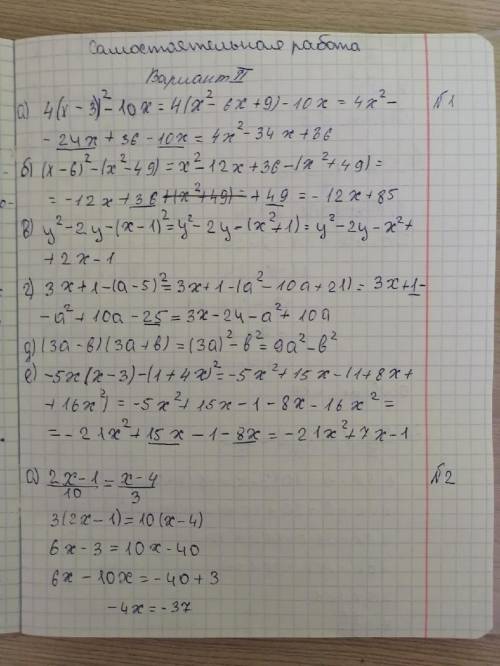 Самостоятельная работа
Вариант II
№1
а) 4(x - 3)² - 10x = 4(x² - 6x + 9) - 10x = 4x² -
- 24x + 36 - 10x = 4x² - 34x + 36
б) (x - 6)² - (x² - 49) = x² - 12x + 36 - (x² + 49) =
= -12x + 36 +(x² + 49) = + 49 = -12x + 85
в) y² - 2y - (x - 1)² = y² - 2y - (x² + 1) = y² - 2y - x² +
+ 2x - 1
г) 3x + 1 - (a - 5)² = 3x + 1 - (a² - 10a + 21) = 3x + 1 -
- a² + 10a - 25 = 3x - 24 - a² + 10a
д) (3a - b)(3a + b) = (3a)² - b² = 9a² - b²
е) -5x(x - 3) - (1 + 4x)² = -5x² + 15x - (1 + 8x +
+ 16x²) = -5x² + 15x - 1 - 8x - 16x² =
= -21x² + 15x - 1 - 8x = -21x² + 7x - 1
№2
а) (2x - 1)/10 = (x - 4)/3
3(2x - 1) = 10(x - 4)
6x - 3 = 10x - 40
6x - 10x = -40 + 3
-4x = -37